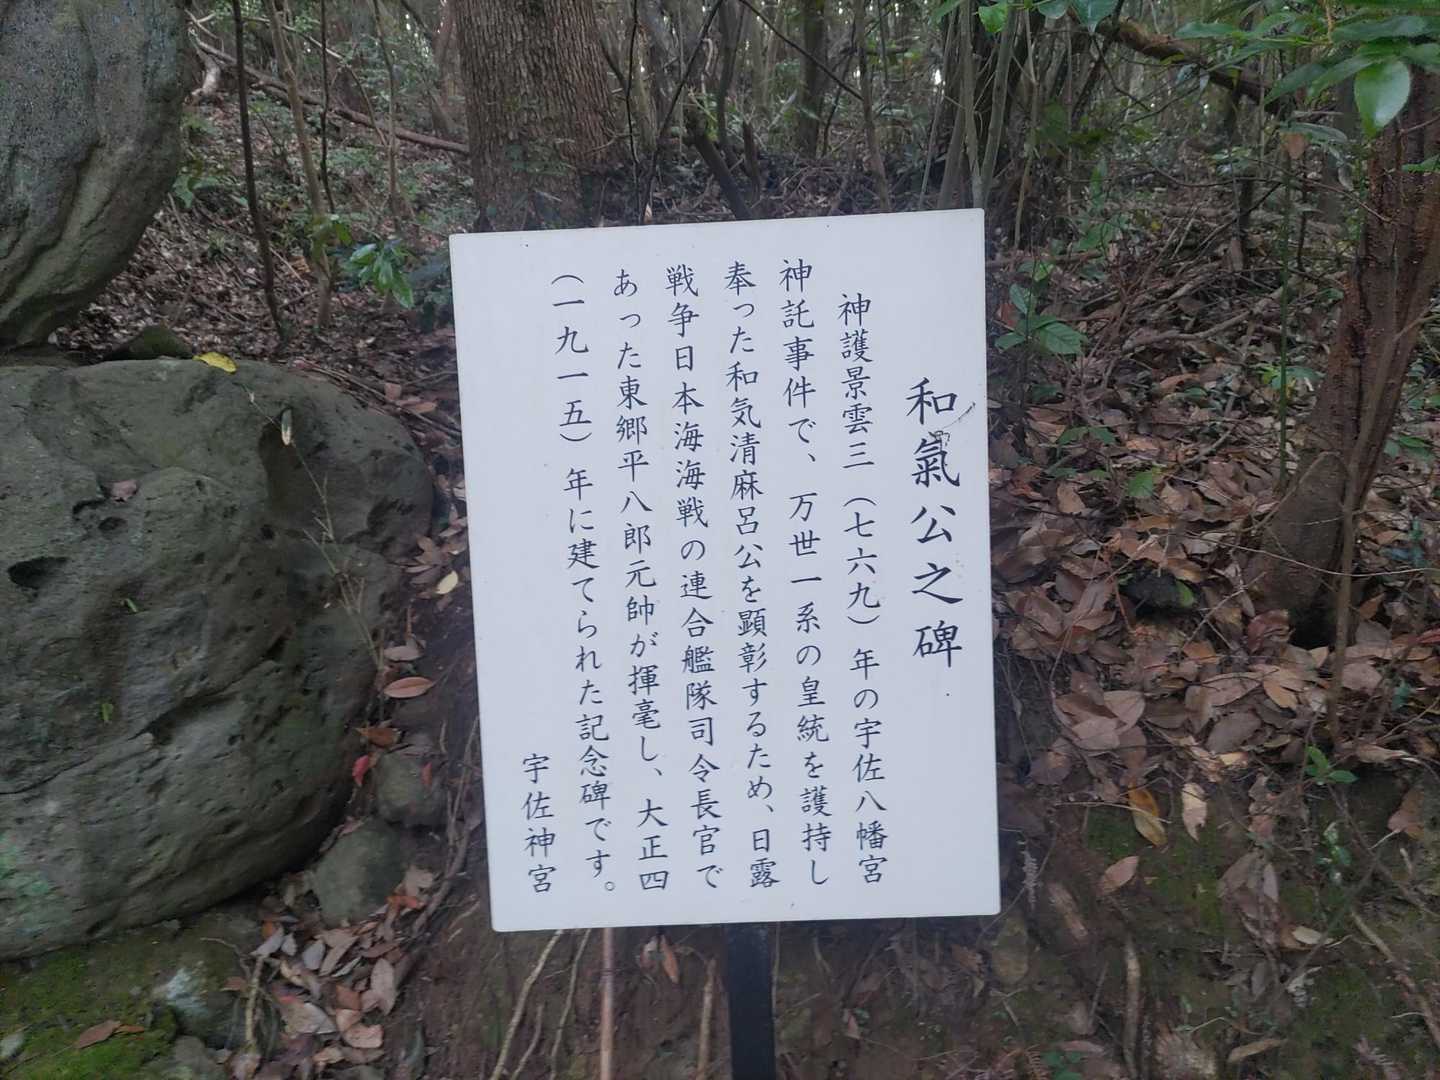 和氣公之碑
神護景雲三（七六九）年の宇佐八幡宮
神託事件で、万世一系の皇統を護持し
奉った和気清麻呂公を顕彰するため、日露
戦争日本海海戦の連合艦隊司令長官で
あった東郷平八郎元帥が揮毫し、大正四
（一九一五）年に建てられた記念碑です。
宇佐神宮